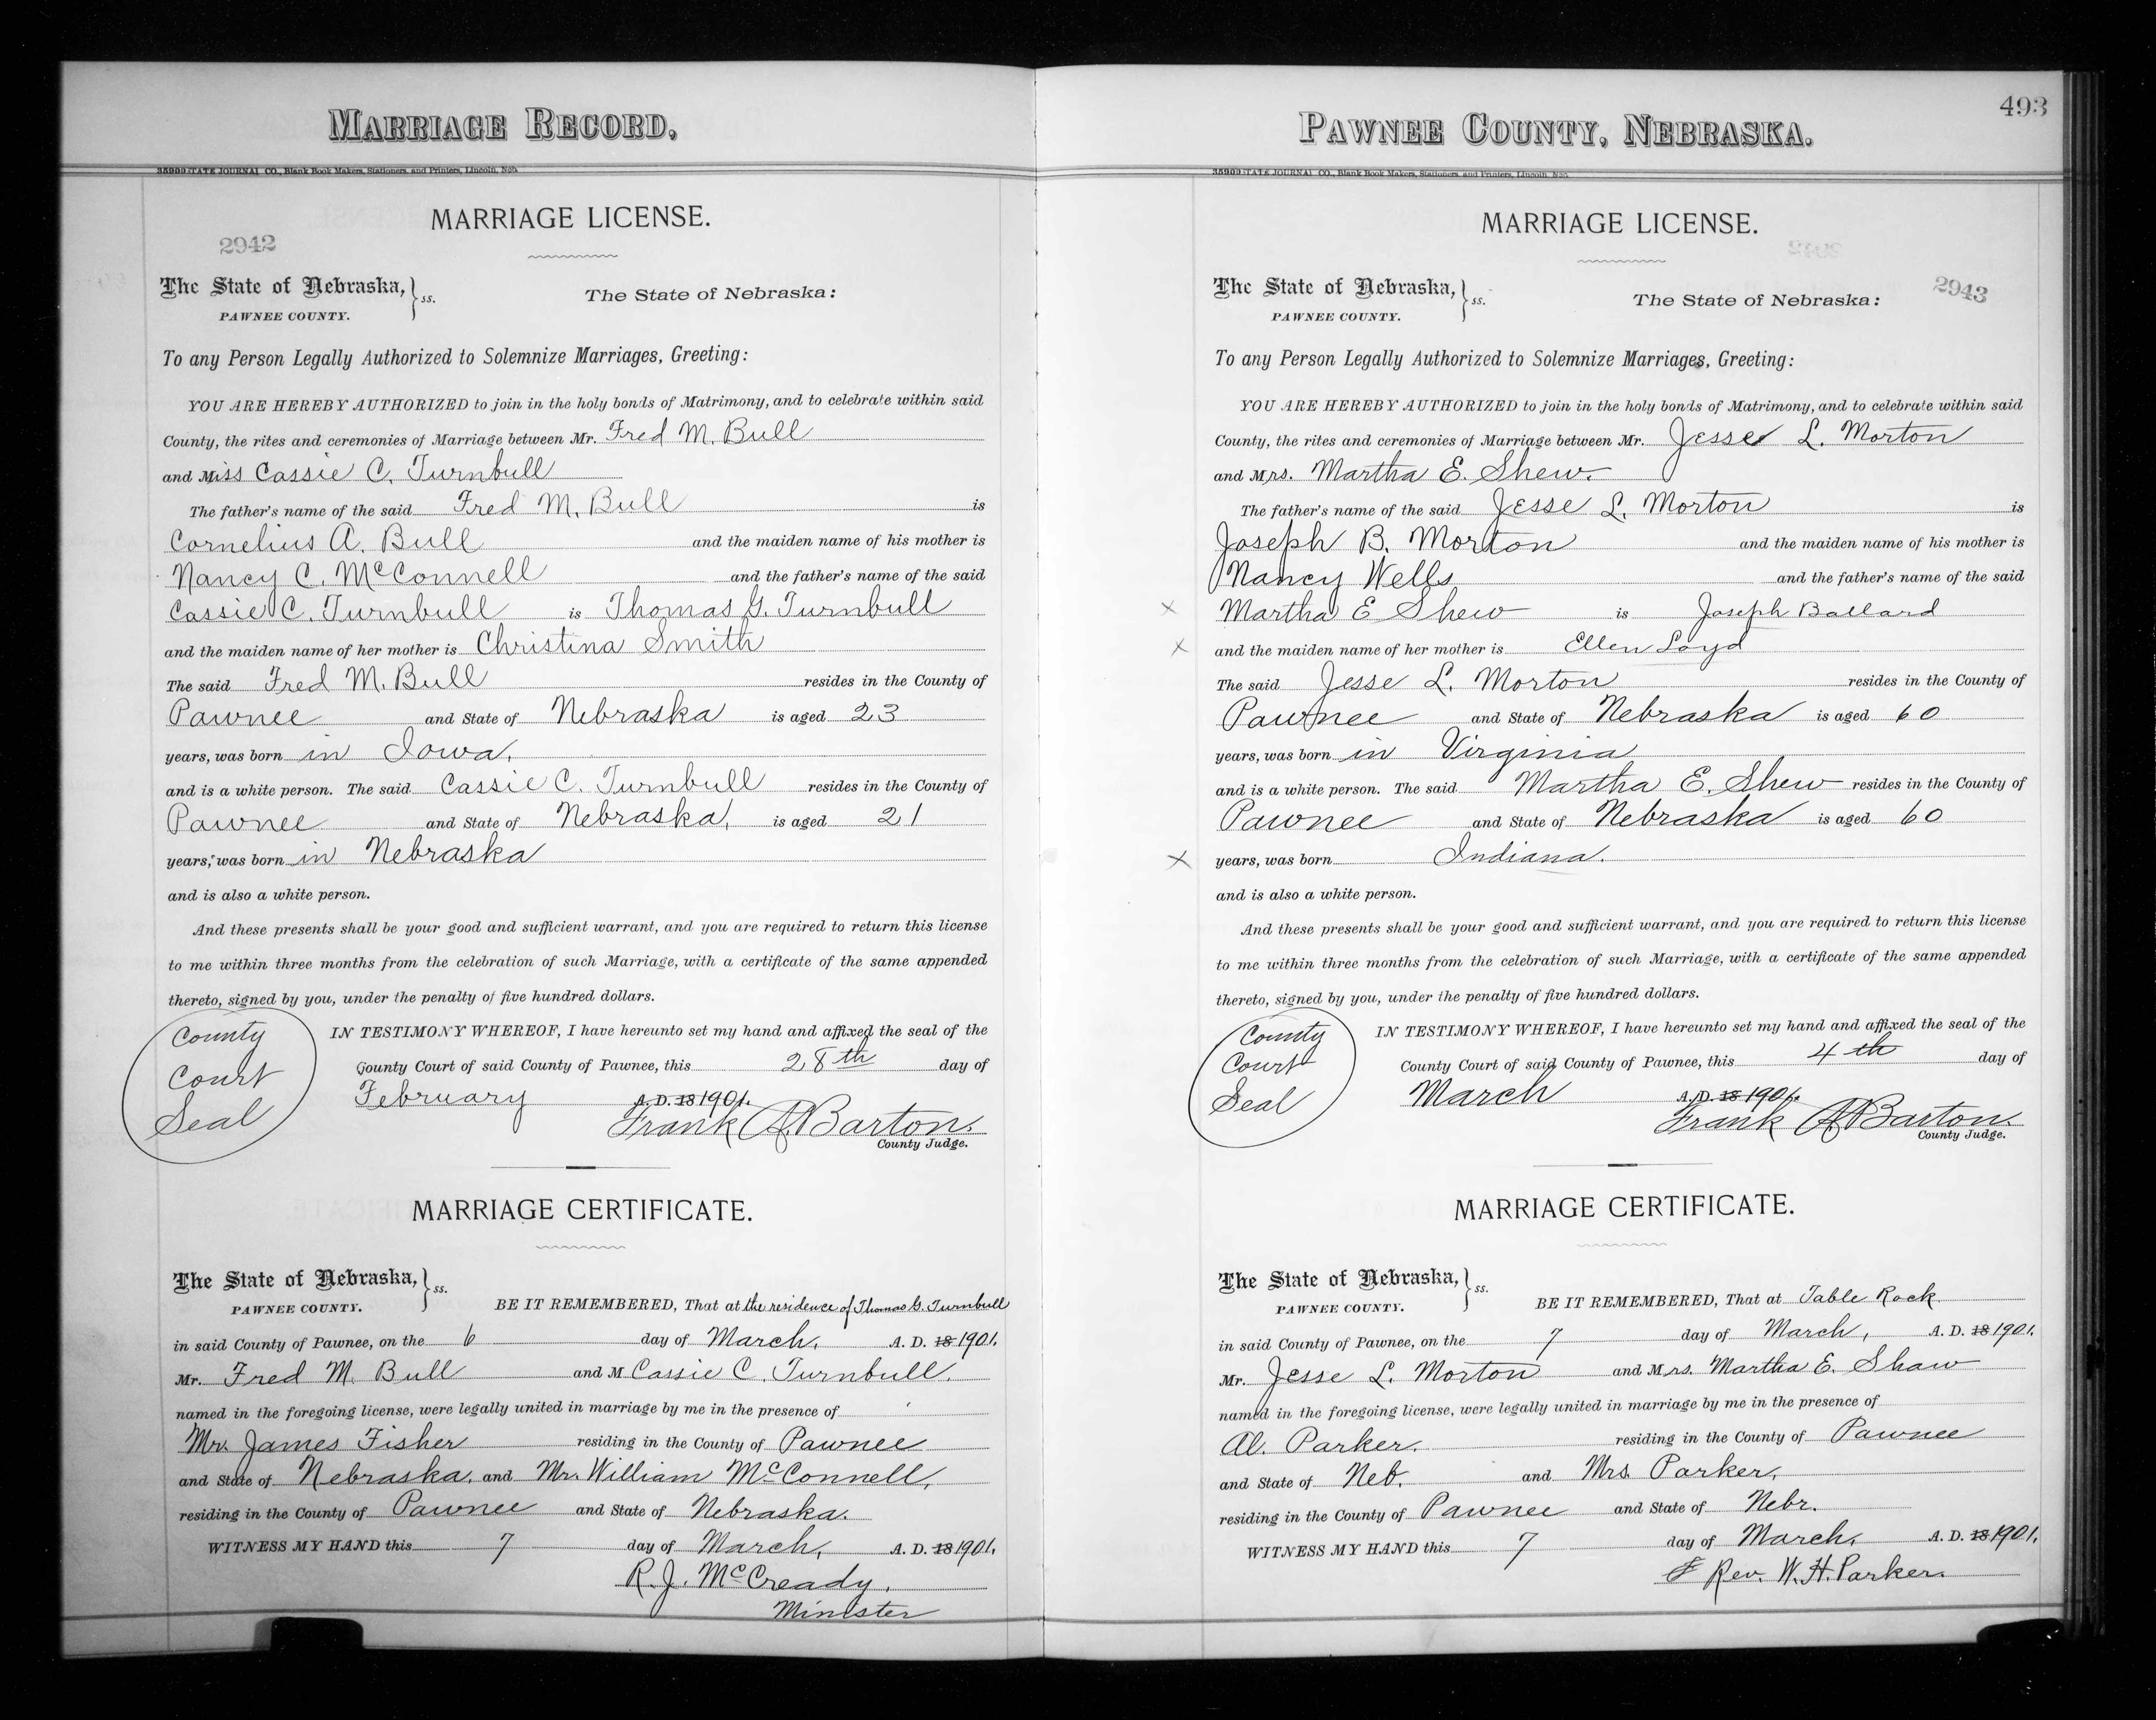 MARRIAGE RECORD.
35909 STATE JOURNAL CO., Blank Book Makers, Stationers, and Printers, Lincoln, Neb.
MARRIAGE LICENSE.
2942
The State of Nebraska, } ss. The State of Nebraska:
PAWNEE COUNTY.
To any Person Legally Authorized to Solemnize Marriages, Greeting:
YOU ARE HEREBY AUTHORIZED to join in the holy bonds of Matrimony, and to celebrate within said
County, the rites and ceremonies of Marriage between Mr. Fred M. Bull
and Miss Cassie C. Turnbull
The father's name of the said Fred M. Bull is
Cornelius A. Bull and the maiden name of his mother is
Nancy C. McConnell and the father's name of the said
Cassie C. Turnbull is Thomas G. Turnbull
and the maiden name of her mother is Christina Smith
The said Fred M. Bull resides in the County of
Pawnee and State of Nebraska is aged 23
years, was born in Iowa.
and is a white person. The said Cassie C. Turnbull resides in the County of
Pawnee and State of Nebraska, is aged 21
years, was born in Nebraska
and is also a white person.
And these presents shall be your good and sufficient warrant, and you are required to return this license
to me within three months from the celebration of such Marriage, with a certificate of the same appended
thereto, signed by you, under the penalty of five hundred dollars.
County Court Seal
IN TESTIMONY WHEREOF, I have hereunto set my hand and affixed the seal of the
County Court of said County of Pawnee, this 28th day of
February A. D. 18 1901.
Frank A. Barton.
County Judge.
MARRIAGE CERTIFICATE.
The State of Nebraska, } ss.
PAWNEE COUNTY.
BE IT REMEMBERED, That at the residence of Thomas G. Turnbull
in said County of Pawnee, on the 6 day of March, A. D. 18 1901.
Mr. Fred M. Bull and M Cassie C. Turnbull.
named in the foregoing license, were legally united in marriage by me in the presence of
Mr. James Fisher residing in the County of Pawnee
and State of Nebraska, and Mr. William McConnell,
residing in the County of Pawnee and State of Nebraska.
WITNESS MY HAND this 7 day of March, A. D. 18 1901.
R. J. McCready.
Minister
PAWNEE COUNTY, NEBRASKA.
493
35909 STATE JOURNAL CO., Blank Book Makers, Stationers, and Printers, Lincoln, Neb.
MARRIAGE LICENSE.
2943
The State of Nebraska, } ss. The State of Nebraska:
PAWNEE COUNTY.
To any Person Legally Authorized to Solemnize Marriages, Greeting:
YOU ARE HEREBY AUTHORIZED to join in the holy bonds of Matrimony, and to celebrate within said
County, the rites and ceremonies of Marriage between Mr. Jesse L. Morton
and Mrs. Martha E. Shew.
The father's name of the said Jesse L. Morton is
Joseph B. Morton and the maiden name of his mother is
Nancy Wells and the father's name of the said
x Martha E Shew is Joseph Ballard
x and the maiden name of her mother is Ellen Loyd
The said Jesse L. Morton resides in the County of
Pawnee and State of Nebraska is aged 60
years, was born in Virginia
and is a white person. The said Martha E. Shew resides in the County of
Pawnee and State of Nebraska is aged 60
x years, was born Indiana.
and is also a white person.
And these presents shall be your good and sufficient warrant, and you are required to return this license
to me within three months from the celebration of such Marriage, with a certificate of the same appended
thereto, signed by you, under the penalty of five hundred dollars.
County Court Seal
IN TESTIMONY WHEREOF, I have hereunto set my hand and affixed the seal of the
County Court of said County of Pawnee, this 4th day of
March A. D. 18 1901.
Frank A. Barton.
County Judge.
MARRIAGE CERTIFICATE.
The State of Nebraska, } ss.
PAWNEE COUNTY.
BE IT REMEMBERED, That at Table Rock
in said County of Pawnee, on the 7 day of March, A. D. 18 1901.
Mr. Jesse L. Morton and Mrs. Martha E. Shaw
named in the foregoing license, were legally united in marriage by me in the presence of
Al. Parker. residing in the County of Pawnee
and State of Neb. and Mrs. Parker,
residing in the County of Pawnee and State of Nebr.
WITNESS MY HAND this 7 day of March, A. D. 18 1901.
Rev. W. H. Parker.